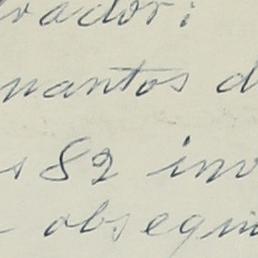 vador:
mantos d
s 82 inv
obsequi